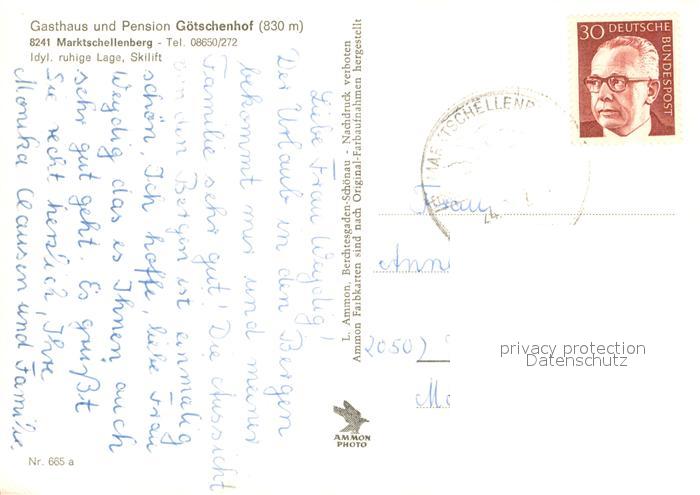 Gasthaus und Pension Götschenhof (830 m)
8241 Marktschellenberg - Tel. 08650/272
Idyl. ruhige Lage, Skilift
Liebe Frau Weydig,
Der Urlaub in den Bergen
bekommt mir und meiner
Familie sehr gut! Die Aussicht
von den Bergen ist einmalig
schön. Ich hoffe, liebe Frau
Weydig das es Ihnen auch
sehr gut geht. Es grüßt
Sie recht herzlich, Ihre
Monika Clausen und Familie.
Nr. 665 a
L. Ammon, Berchtesgaden-Schönau - Nachdruck verboten
Ammon Farbkarten sind nach Original-Farbaufnahmen hergestellt
AMMON
PHOTO
30 DEUTSCHE
BUNDESPOST
MARKTSCHELLENB
24.
Frau
Anne
2050)
privacy protection
Datenschutz